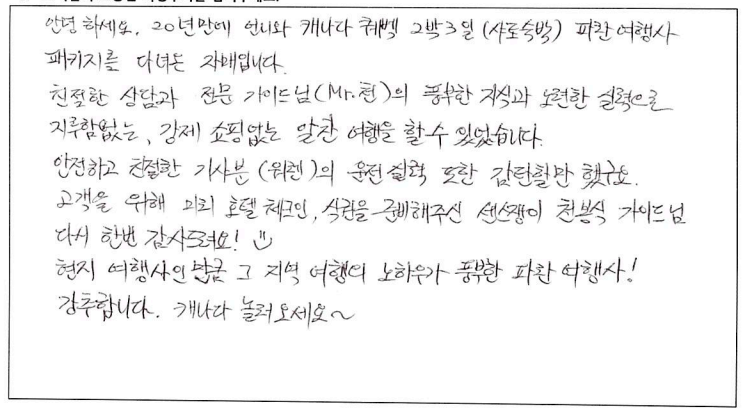 안녕하세요. 20년만에 언니와 캐나다 퀘벡 2박3일 (샤로숙박) 파란여행사
패키지를 다녀온 자매입니다.
친절한 상담과 전문 가이드님(Mr.천)의 풍부한 지식과 노련한 실력으로
지루함없는, 강제 쇼핑없는 알찬 여행을 할 수 있었습니다.
안전하고 친절한 기사분 (워렌)의 운전실력 또한 감탄할만 했구요.
고객을 위해 미리 호텔 체크인, 식권을 준비해주신 센스쟁이 천봉식 가이드님
다시 한번 감사드려요!
현지 여행사인 만큼 그 지역 여행의 노하우가 풍부한 파란 여행사!
강추합니다. 캐나다 놀러오세요~